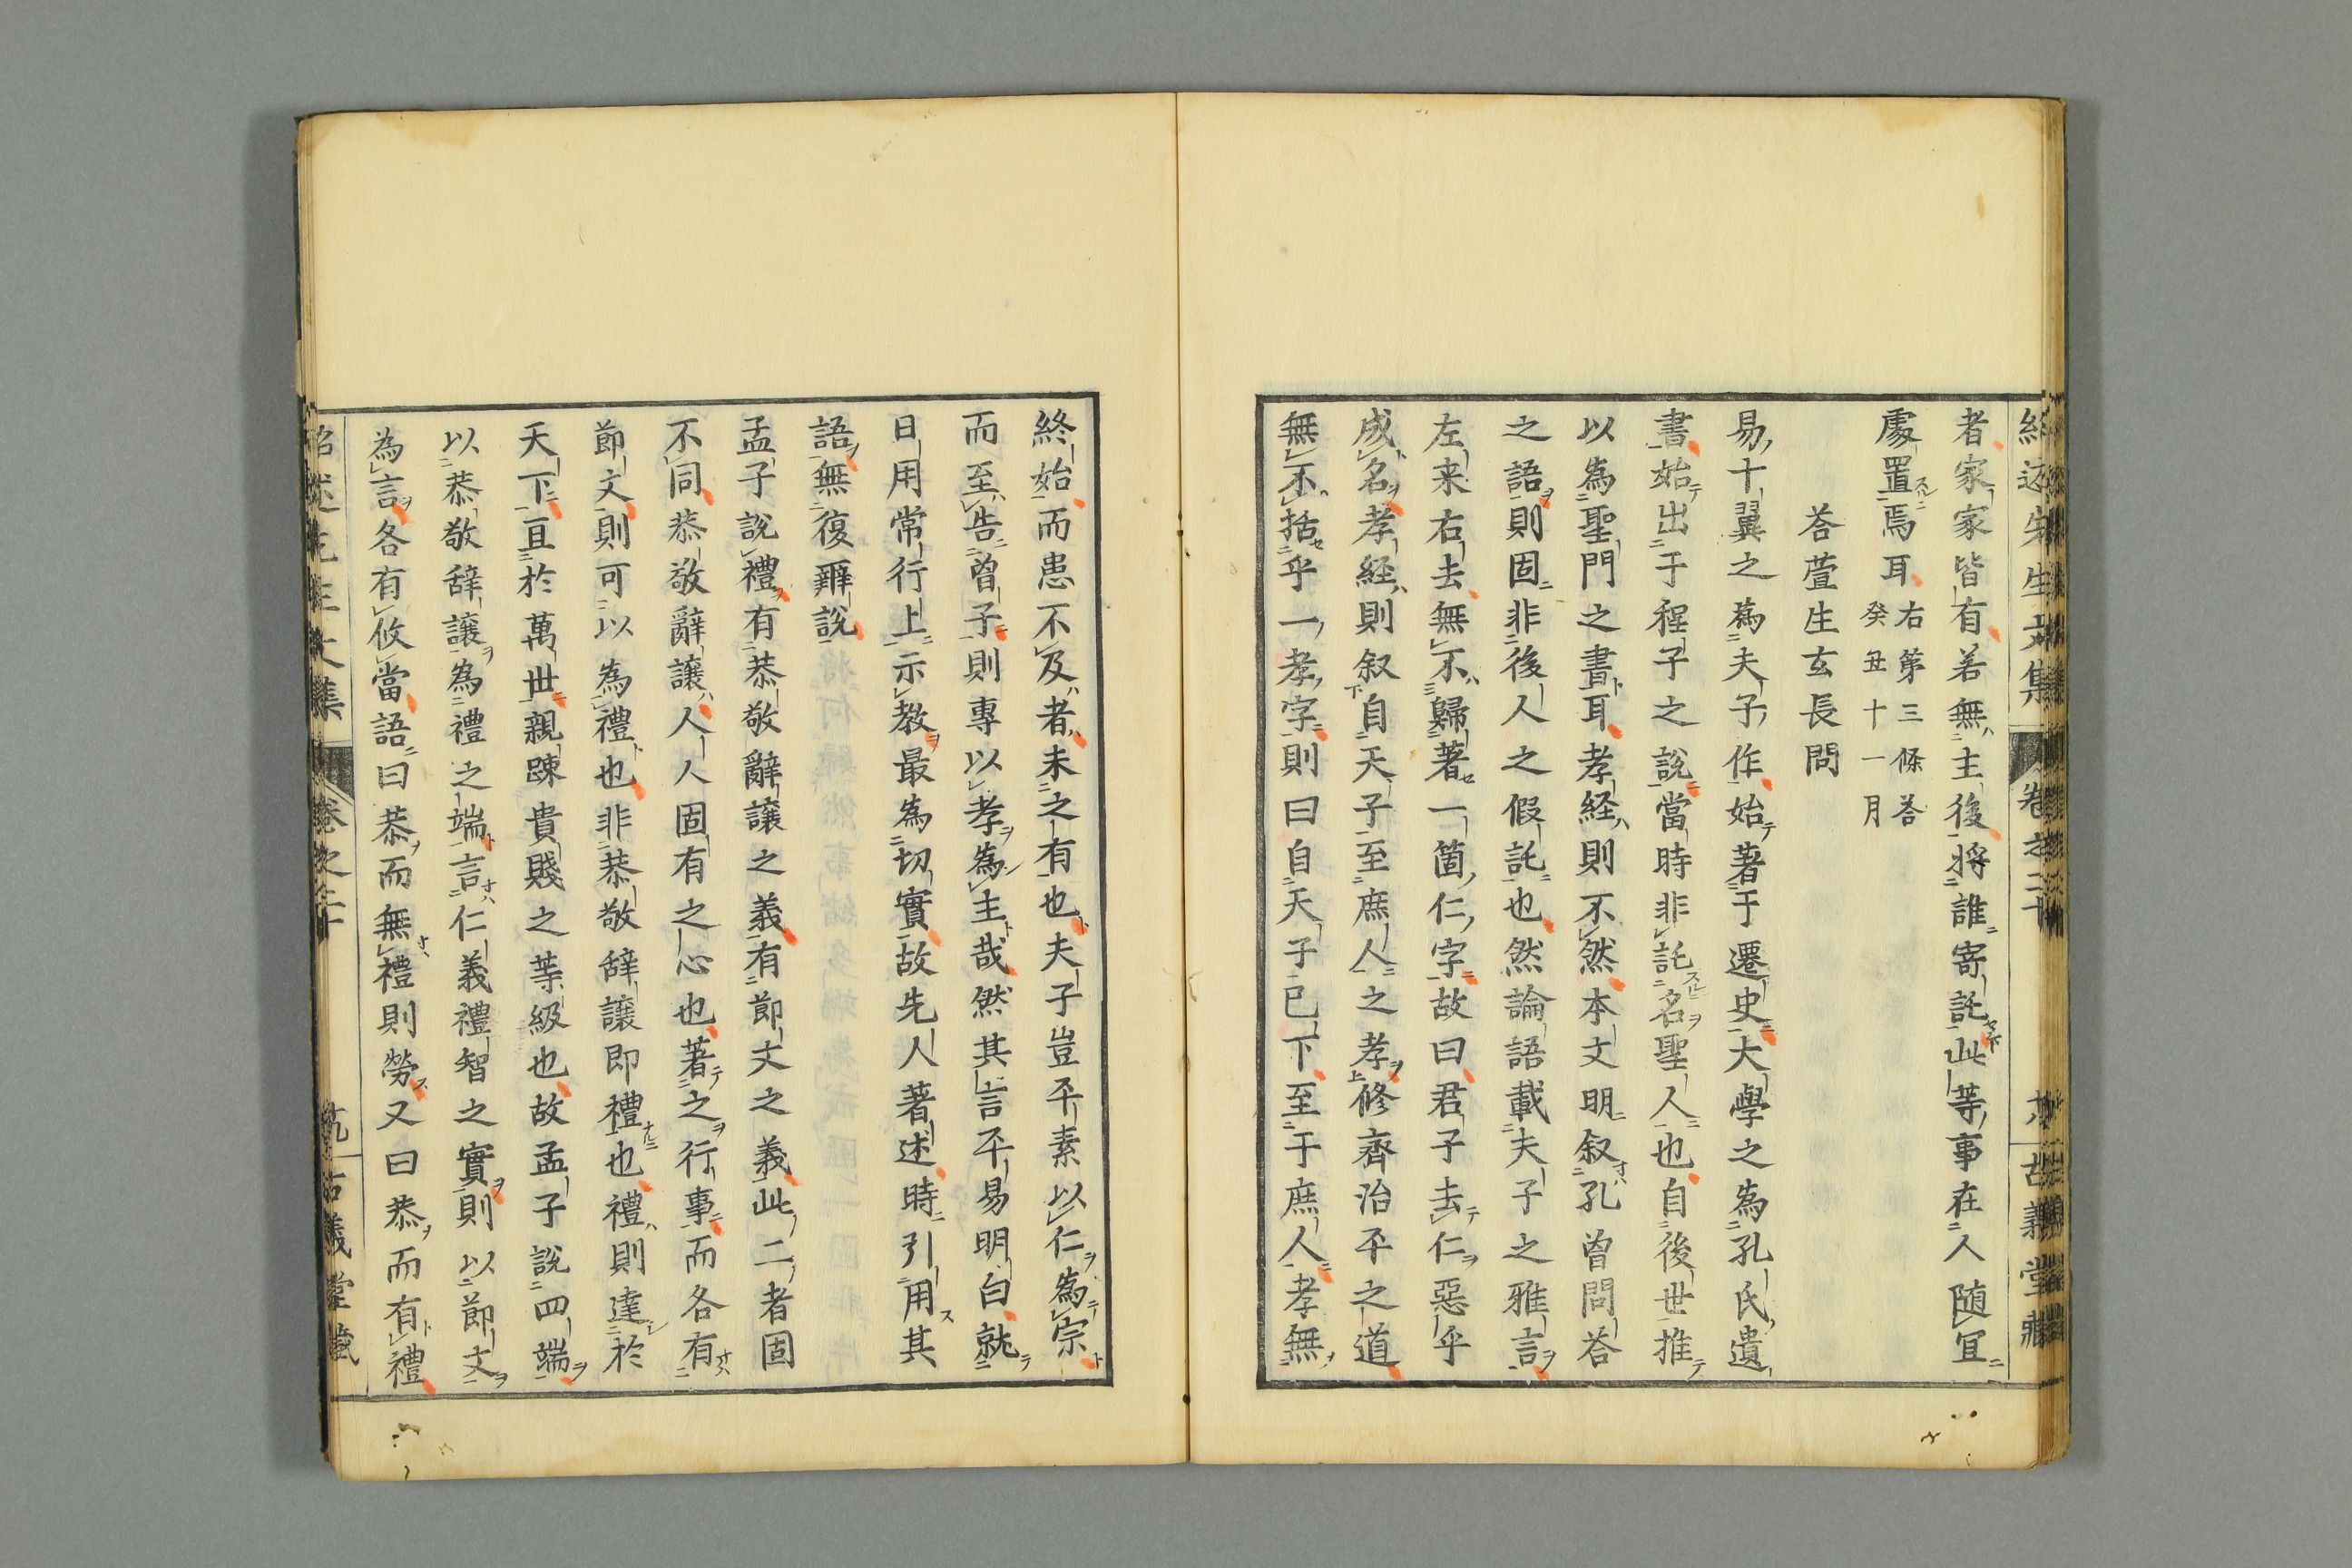 者家家皆有若無主後將誰寄託此等事在人随冝
處置焉耳右第三條荅
癸丑十一月
荅萱生玄長問
易十翼之爲夫子作始著于遷史大學之爲孔氏遺
書始出于程子之說當時非託名聖人也自後世推
以爲聖門之書耳孝経則不然本文明叙孔曽問荅
之語則固非後人之假託也然論語載夫子之雅言
左来右去無不歸著一箇仁字故曰君子去仁惡乎
成名孝経則叙自天子至庶人之孝修齊治平之道
無不括乎一孝字則曰自天子已下至于庶人孝無
終始而患不及者未之有也夫子豈平素以仁爲宗
而至告曽子則專以孝爲主哉然其言平易明白就
日用常行上示教最爲切實故先人著述時引用其
語無復辨說
孟子說禮有恭敬辭讓之義有節文之義此二者固
不同恭敬辭讓人人固有之心也著之行事而各有
節文則可以為禮也非恭敬辞讓即禮也禮則達於
天下亘於萬世親踈貴賤之等級也故孟子說四端
以恭敬辞讓為禮之端言仁義禮智之實則以節文
為言各有攸當語曰恭而無禮則勞又曰恭而有禮